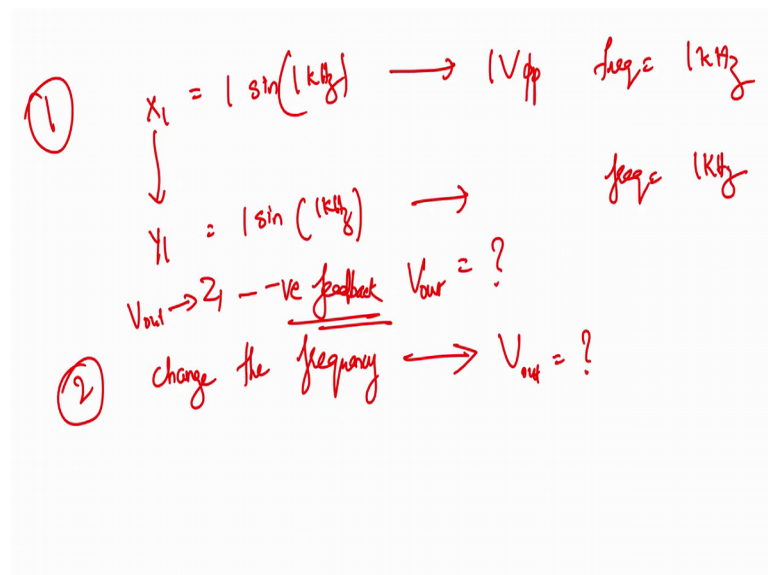 ① X1 = 1 sin(1kHz) → 1Vpp freq = 1kHz
↓
Y1 = 1 sin (1kHz) → freq = 1KHz
Vout → Z1 - -ve feedback Vour = ?
② change the frequency → Vout = ?